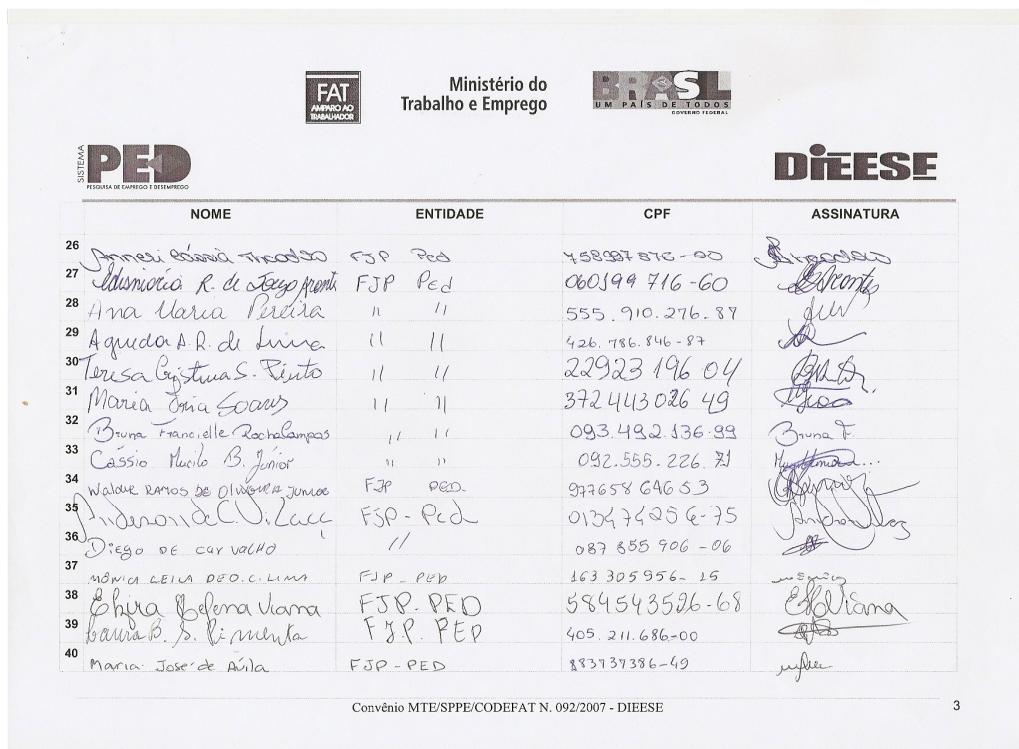 FAT
AMPARO AO
TRABALHADOR
Ministério do
Trabalho e Emprego
BRASIL
UM PAÍS DE TODOS
GOVERNO FEDERAL
SISTEMA
PED
PESQUISA DE EMPREGO E DESEMPREGO
DIEESE
NOME ENTIDADE CPF ASSINATURA
26 FJP Ped
27 R. de FJP Ped 060199 716-60
28 Ana Maria Pereira " " 555.910.276.87
29 Agueda A. R. de Lima " " 426.786.846-87
30 Teresa Cristina S. Pinto " " 22923 196 04
31 Maria Soares " " 372443026 49
32 Bruna Francielle Rocha Campos " " 093.492.136-99 Bruna F.
33 Cássio Murilo B. Júnior " " 092.555.226.71
34 RAMOS DE OLIVEIRA JUNIOR FJP PED. 977658 646 53
35 Anderson de C. FJP - Ped 013474256-75
36 Diego DE CARVALHO // 087 855 906 - 06
37 MÔNICA LEILA DE O. C. LIMA FJP - PED 163 305956 - 15
38 Helena Viana FJP. PED 584543526-68
39 Laura B. S. Pimenta FJP. PED 405.211.686-00
40 Maria José de Ávila FJP - PED 883737386-49
Convênio MTE/SPPE/CODEFAT N. 092/2007 - DIEESE
3